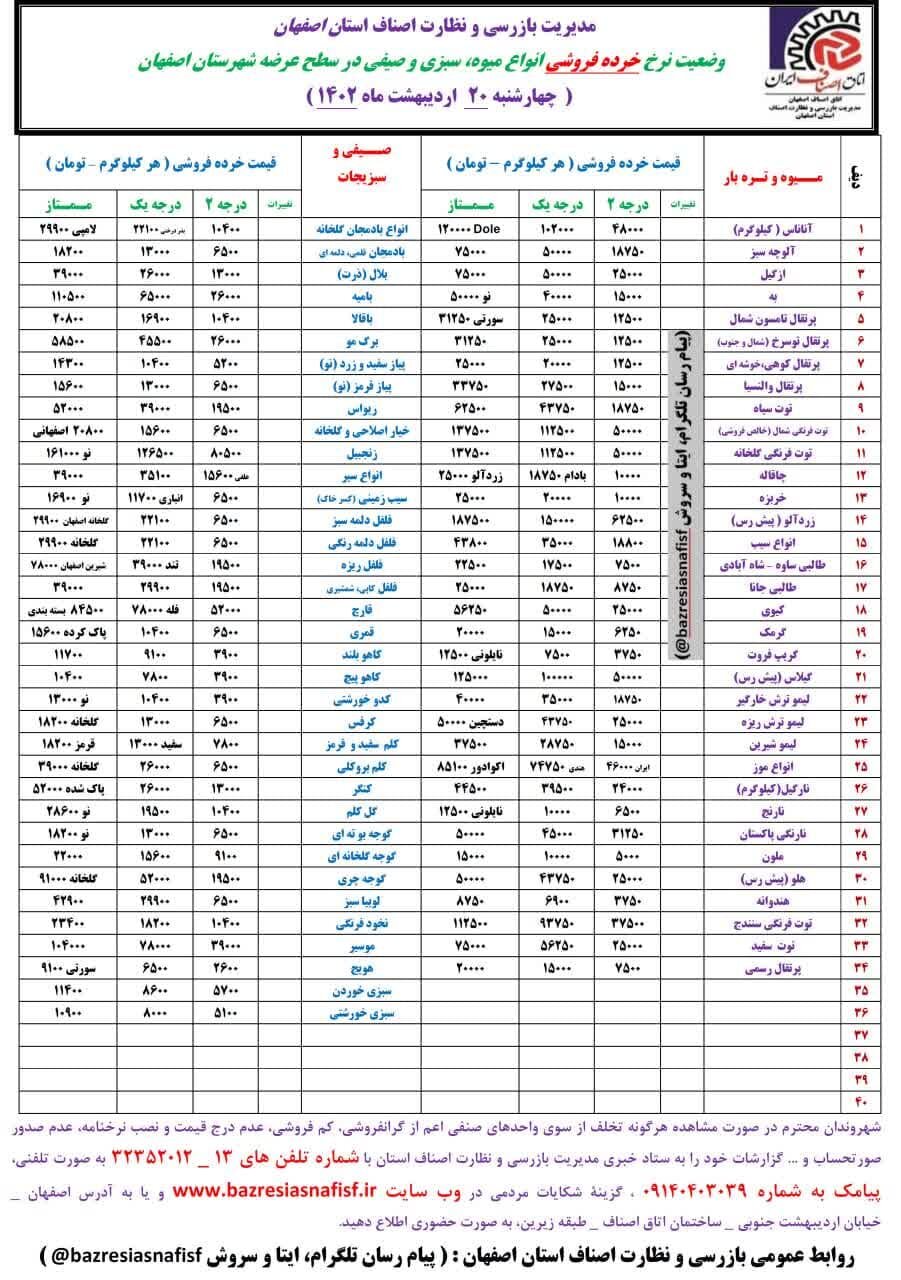 مدیریت بازرسی و نظارت اصناف استان اصفهان
وضعیت نرخ خرده فروشی انواع میوه، سبزی و صیفی در سطح عرضه شهرستان اصفهان
( چهارشنبه ۲۰ اردیبهشت ماه ۱۴۰۲ )
اتاق اصناف ایران
اتاق اصناف اصفهان
مدیریت بازرسی و نظارت اصناف
استان اصفهان
ردیف میوه و تره بار قیمت خرده فروشی ( هر کیلوگرم – تومان ) صیفی و سبزیجات قیمت خرده فروشی ( هر کیلوگرم - تومان )
تغییرات درجه ۲ درجه یک ممتاز تغییرات درجه ۲ درجه یک ممتاز
۱ آناناس ( کیلوگرم) ۴۸۰۰۰ ۱۰۲۰۰۰ Dole ۱۲۰۰۰۰ انواع بادمجان گلخانه ۱۰۴۰۰ ۲۲۱۰۰ لامپی ۲۹۹۰۰
۲ آلوچه سبز ۱۸۷۵۰ ۵۰۰۰۰ ۷۵۰۰۰ بادمجان قلمی، دلمه ای ۶۵۰۰ ۱۳۰۰۰ ۱۸۲۰۰
۳ ازگیل ۲۵۰۰۰ ۵۰۰۰۰ ۷۵۰۰۰ بلال (ذرت) ۱۳۰۰۰ ۲۶۰۰۰ ۳۹۰۰۰
۴ به ۱۵۰۰۰ ۴۰۰۰۰ نو ۵۰۰۰۰ بامیه ۲۶۰۰۰ ۶۵۰۰۰ ۱۱۰۵۰۰
۵ پرتقال تامسون شمال ۱۲۵۰۰ ۲۵۰۰۰ سورتی ۳۱۲۵۰ باقالا ۱۰۴۰۰ ۱۶۹۰۰ ۲۰۸۰۰
۶ پرتقال توسرخ (شمال و جنوب) ۱۲۵۰۰ ۲۵۰۰۰ ۳۱۲۵۰ برگ مو ۲۶۰۰۰ ۴۵۵۰۰ ۵۸۵۰۰
۷ پرتقال کوهی،خوشه ای ۱۲۵۰۰ ۲۰۰۰۰ ۲۵۰۰۰ پیاز سفید و زرد (نو) ۵۲۰۰ ۱۰۴۰۰ ۱۴۳۰۰
۸ پرتقال والنسیا ۱۵۰۰۰ ۲۷۵۰۰ ۳۳۷۵۰ پیاز قرمز (نو) ۶۵۰۰ ۱۳۰۰۰ ۱۵۶۰۰
۹ توت سیاه ۱۸۷۵۰ ۴۳۷۵۰ ۶۲۵۰۰ ریواس ۱۹۵۰۰ ۳۹۰۰۰ ۵۲۰۰۰
۱۰ توت فرنگی شمال (خالص فروشی) ۵۰۰۰۰ ۱۱۲۵۰۰ ۱۳۷۵۰۰ خیار اصلاحی و گلخانه ۶۵۰۰ ۱۵۶۰۰ ۲۰۸۰۰ اصفهانی
۱۱ توت فرنگی گلخانه ۵۰۰۰۰ ۱۱۲۵۰۰ ۱۳۷۵۰۰ زنجبیل ۸۰۵۰۰ ۱۲۶۵۰۰ نو ۱۶۱۰۰۰
۱۲ چاقاله ۱۰۰۰۰ بادام ۱۸۷۵۰ زردآلو ۲۵۰۰۰ انواع سیر ۱۵۶۰۰ ۳۵۱۰۰ ۳۹۰۰۰
۱۳ خربزه ۱۰۰۰۰ ۲۰۰۰۰ ۲۵۰۰۰ سیب زمینی (کسر خاک) ۶۵۰۰ انباری ۱۱۷۰۰ نو ۱۶۹۰۰
۱۴ زردآلو ( پیش رس) ۶۲۵۰۰ ۱۵۰۰۰۰ ۱۸۷۵۰۰ فلفل دلمه سبز ۶۵۰۰ ۲۲۱۰۰ گلخانه اصفهان ۲۹۹۰۰
۱۵ انواع سیب ۱۸۸۰۰ ۳۵۰۰۰ ۴۳۸۰۰ فلفل دلمه رنگی ۶۵۰۰ ۲۲۱۰۰ گلخانه ۲۹۹۰۰
۱۶ طالبی ساوه – شاه آبادی ۷۵۰۰ ۱۷۵۰۰ ۲۲۵۰۰ فلفل ریزه ۱۹۵۰۰ تند ۳۹۰۰۰ شیرین اصفهان ۷۸۰۰۰
۱۷ طالبی جانا ۸۷۵۰ ۱۸۷۵۰ ۲۵۰۰۰ فلفل کاپی، شمشیری ۱۹۵۰۰ ۲۹۹۰۰ ۳۹۰۰۰
۱۸ کیوی ۲۵۰۰۰ ۵۰۰۰۰ ۵۶۲۵۰ قارچ ۵۲۰۰۰ فله ۷۸۰۰۰ ۸۴۵۰۰ بسته بندی
۱۹ گرمک ۶۲۵۰ ۱۵۰۰۰ ۲۰۰۰۰ قمری ۶۵۰۰ ۱۰۴۰۰ پاک کرده ۱۵۶۰۰
۲۰ گریپ فروت ۳۷۵۰ ۷۵۰۰ نایلونی ۱۲۵۰۰ کاهو بلند ۳۹۰۰ ۹۱۰۰ ۱۱۷۰۰
۲۱ گیلاس (پیش رس) ۵۰۰۰۰ ۱۰۰۰۰۰ ۱۲۵۰۰۰ کاهو پیچ ۳۹۰۰ ۷۸۰۰ ۱۰۴۰۰
۲۲ لیمو ترش خارگیر ۱۸۷۵۰ ۳۵۰۰۰ ۴۰۰۰۰ کدو خورشتی ۳۹۰۰ ۱۰۴۰۰ نو ۱۳۰۰۰
۲۳ لیمو ترش ریزه ۲۵۰۰۰ ۴۳۷۵۰ دستچین ۵۰۰۰۰ کرفس ۶۵۰۰ ۱۳۰۰۰ گلخانه ۱۸۲۰۰
۲۴ لیمو شیرین ۱۵۰۰۰ ۲۸۷۵۰ ۳۷۵۰۰ کلم سفید و قرمز ۷۸۰۰ سفید ۱۳۰۰۰ قرمز ۱۸۲۰۰
۲۵ انواع موز ایران ۴۶۰۰۰ هندی ۷۴۷۵۰ اکوادور ۸۵۱۰۰ کلم بروکلی ۶۵۰۰ ۲۶۰۰۰ گلخانه ۳۹۰۰۰
۲۶ نارگیل(کیلوگرم) ۲۴۰۰۰ ۳۹۵۰۰ ۴۴۵۰۰ کنگر ۱۳۰۰۰ ۲۶۰۰۰ پاک شده ۵۲۰۰۰
۲۷ نارنج ۶۵۰۰ ۱۰۰۰۰ نایلونی ۱۲۵۰۰ گل کلم ۱۰۴۰۰ ۱۹۵۰۰ نو ۲۸۶۰۰
۲۸ نارنگی پاکستان ۳۱۲۵۰ ۴۵۰۰۰ ۵۰۰۰۰ گوجه بوته ای ۶۵۰۰ ۱۳۰۰۰ نو ۱۸۲۰۰
۲۹ ملون ۵۰۰۰ ۱۰۰۰۰ ۱۵۰۰۰ گوجه گلخانه ای ۹۱۰۰ ۱۵۶۰۰ ۲۲۰۰۰
۳۰ هلو (پیش رس) ۲۵۰۰۰ ۴۳۷۵۰ ۵۰۰۰۰ گوجه چری ۱۹۵۰۰ ۵۲۰۰۰ گلخانه ۹۱۰۰۰
۳۱ هندوانه ۳۷۵۰ ۶۹۰۰ ۸۷۵۰ لوبیا سبز ۶۵۰۰ ۲۹۹۰۰ ۴۲۹۰۰
۳۲ توت فرنگی سنندج ۳۷۵۰۰ ۹۳۷۵۰ ۱۱۲۵۰۰ نخود فرنگی ۱۰۴۰۰ ۱۸۲۰۰ ۲۳۴۰۰
۳۳ توت سفید ۲۵۰۰۰ ۵۶۲۵۰ ۷۵۰۰۰ موسیر ۳۹۰۰۰ ۷۸۰۰۰ ۱۰۴۰۰۰
۳۴ پرتقال رسمی ۷۵۰۰ ۱۵۰۰۰ ۲۰۰۰۰ هویج ۲۶۰۰ ۶۵۰۰ سورتی ۹۱۰۰
۳۵ سبزی خوردن ۵۷۰۰ ۸۶۰۰ ۱۱۴۰۰
۳۶ سبزی خورشتی ۵۱۰۰ ۸۰۰۰ ۱۰۹۰۰
۳۷
۳۸
۳۹
۴۰
(پیام رسان تلگرام، ایتا و سروش bazresiasnafisf@)
شهروندان محترم در صورت مشاهده هرگونه تخلف از سوی واحدهای صنفی اعم از گرانفروشی، کم فروشی، عدم درج قیمت و نصب نرخنامه، عدم صدور
صورتحساب و ... گزارشات خود را به ستاد خبری مدیریت بازرسی و نظارت اصناف استان با شماره تلفن های ۱۳ _ ۳۲۳۵۲۰۱۲ به صورت تلفنی،
پیامک به شماره ۰۹۱۴۰۴۰۳۰۳۹ ، گزینهٔ شکایات مردمی در وب سایت www.bazresiasnafisf.ir و یا به آدرس اصفهان _
خیابان اردیبهشت جنوبی _ ساختمان اتاق اصناف _ طبقه زیرین، به صورت حضوری اطلاع دهید.
روابط عمومی بازرسی و نظارت اصناف استان اصفهان : ( پیام رسان تلگرام، ایتا و سروش bazresiasnafisf@ )